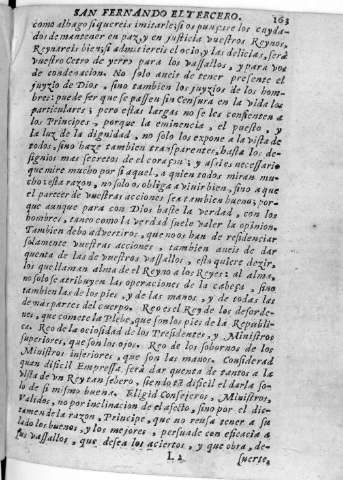 SAN FERNANDO EL TERCERO. 163
como alhago si quereis imitarle; si os pungise los cuydados
de mantener en paz, y en justicia vuestros Reynos,
Reynareis bien; si admitiereis el ocio, y las delicias, serà
vuestro Cetro de yerro para los vassallos, y para vos
de condenacion. No solo aueis de tener presente el
juyzio de Dios, sino tambien los juyzios de los hombres:
puede ser que se passen sin Censura en la vida los
particulares; pero estas largas no se les consienten a
los Principes, porque la eminencia, el puesto, y
la luz de la dignidad, no solo los expone a la vista de
todos, sino haze tambien transparentes, hasta los designios
mas secretos de el coraçon; y assi es necessario
que mire mucho por si aquel, a quien todos miran mucho:
esta razon, no solo os obliga a viuir bien, sino a que
el parecer de vuestras acciones sea tambien bueno; porque
aunque para con Dios baste la verdad, con los
hombres, tanto como la verdad suele valer la opinion.
Tambien debo advertiros, que no os han de residenciar
solamente vuestras acciones, tambien aueis de dar
quenta de las de vuestros vassallos, esto quiere dezir,
los que llaman alma de el Reyno a los Reyes: al alma,
no solo se atribuyen las operaciones de la cabeça, sino
tambien las de los pies, y de las manos, y de todas las
demas partes del cuerpo. Reo es el Rey de los desordenes,
que comete la Plebe, que son los pies de la Republica.
Reo de la ociosidad de los Presidentes, y Ministros
superiores, que son los ojos. Reo de los sobornos de los
Ministros inferiores, que son las manos. Considerad
quan dificil Empressa serà dar quenta de tantos a la
vista de vn Rey tan sebero, siendo tã dificil el darla solo
de si mismo buena. Eligid Consejeros, Ministros,
Validos, no por inclinacion de el afecto, sino por el dictamen
de la razon, Principe, que no reusa tener a su
lado los buenos, y los mejores, persuade con eficacia a
sus vassallos, que desea los aciertos, y que obra, de
L 2 suerte,